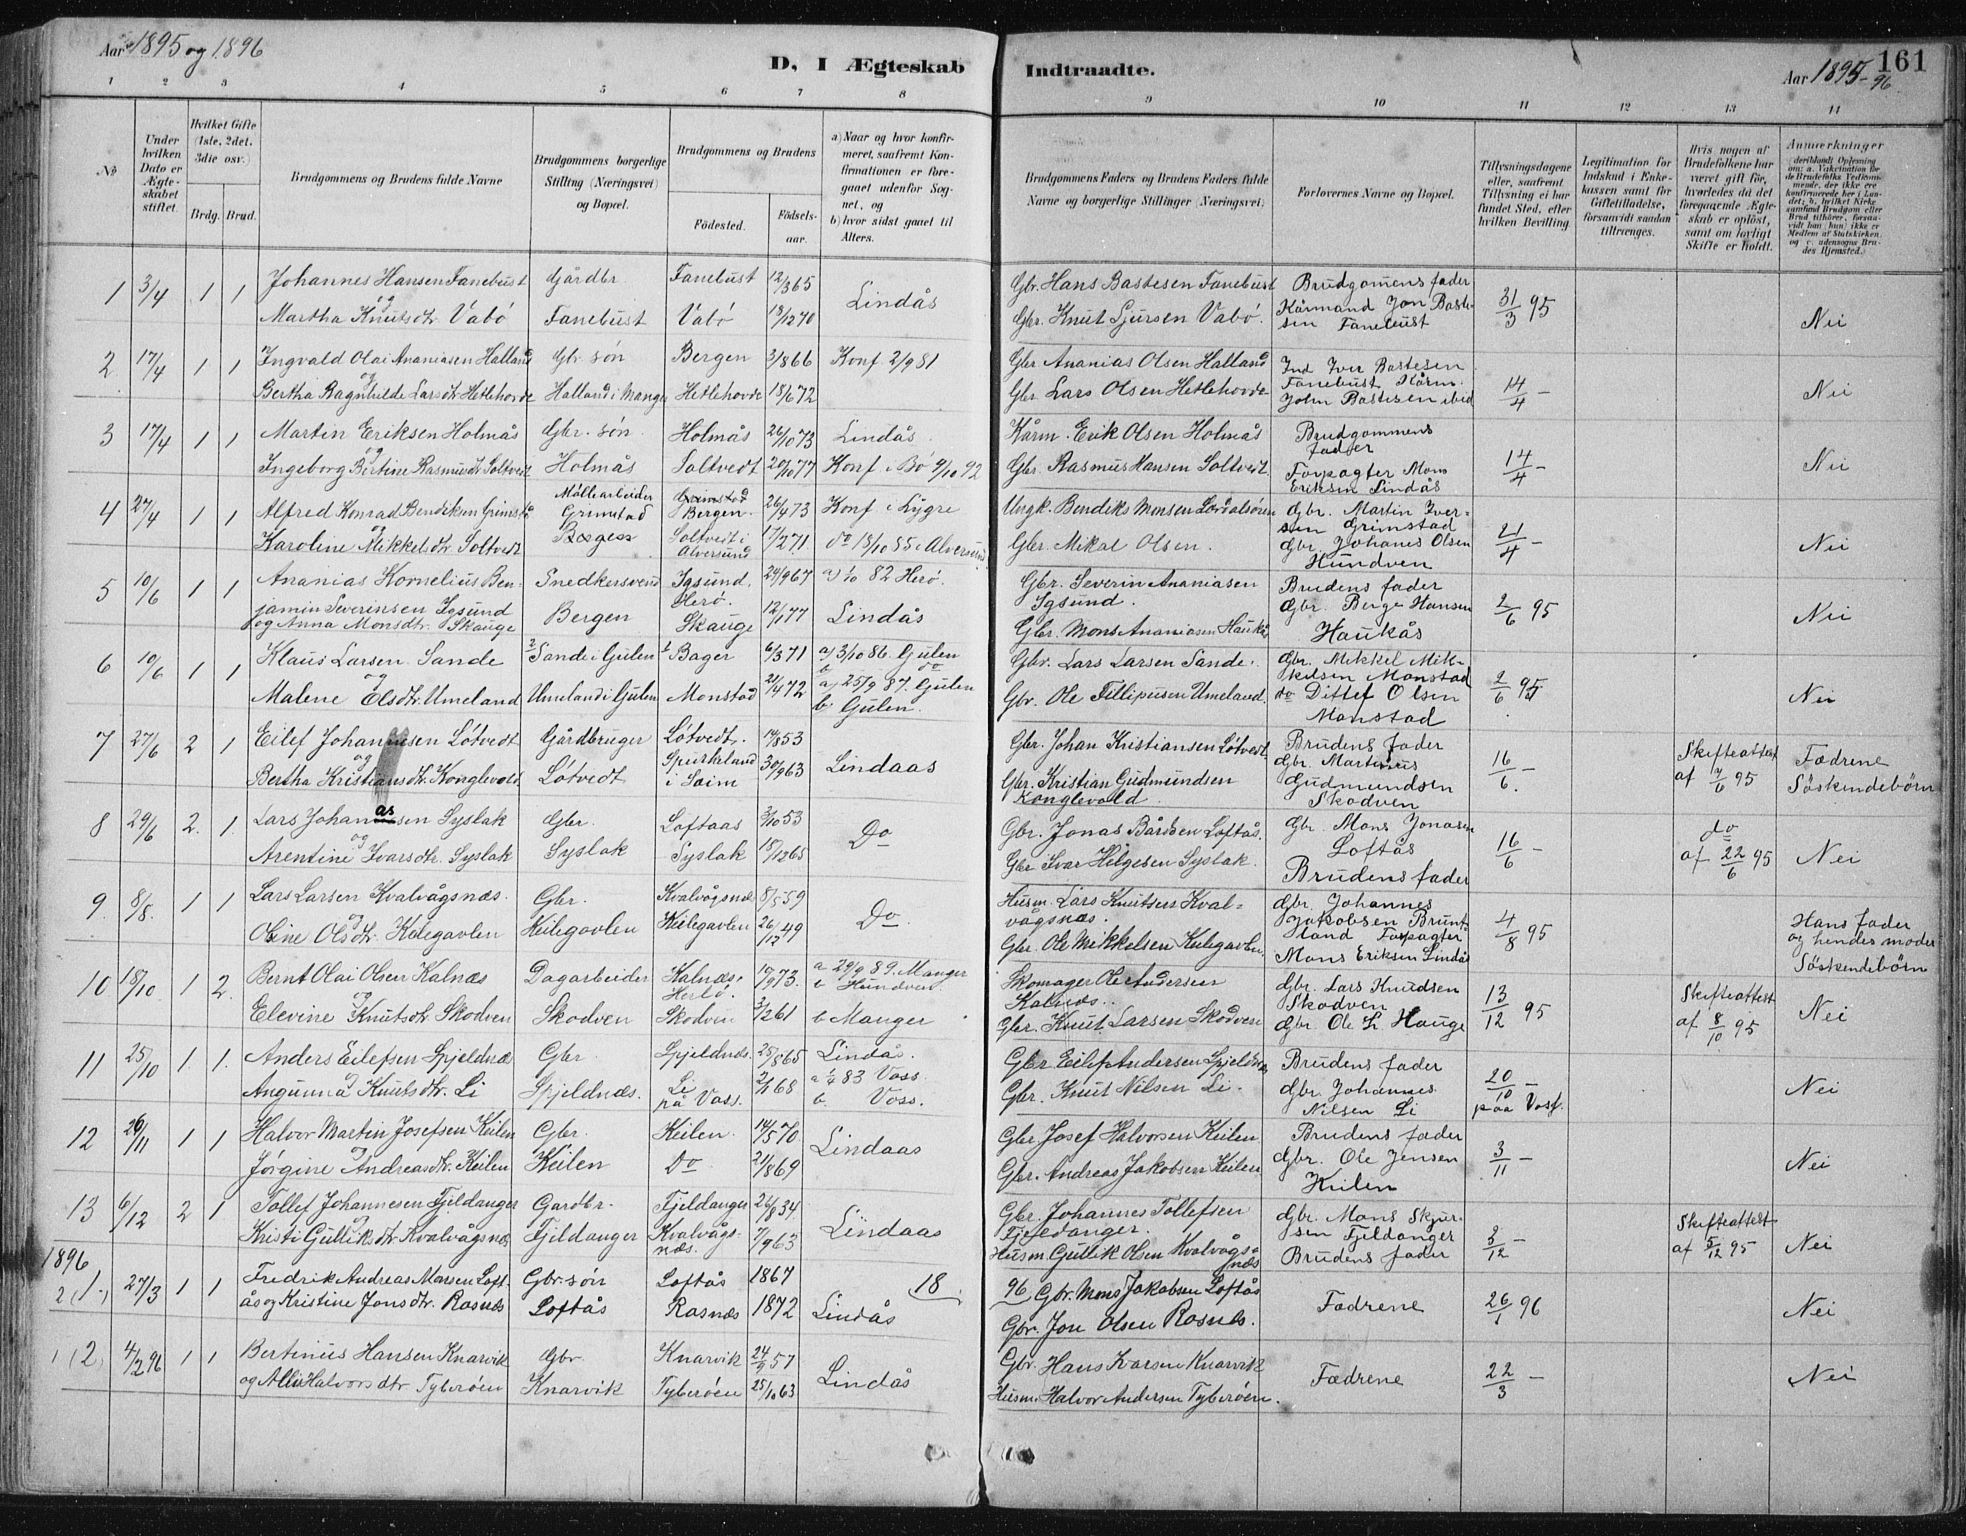 Aar 1895 og 1896
D, I Ægteskab Indtraadte.
161
Aar 1895-96.
1 2 3 4 5 6 7 8 9 10 11 12 13 14
No
Under hvilken Dato er Ægteskabet stiftet.
Hvilket Gifte (1ste, 2det, 3die osv.)
Brdg. Brud.
Brudgommens og Brudens fulde Navne
Brudgommens borgerlige Stilling (Næringsvei) og Bopæl.
Brudgommens og Brudens
Fødested. Fødsels-aar.
a) Naar og hvor konfirmeret, saafremt Konfirmationen er foregaaet udenfor Sognet, og
b) hvor sidst gaaet til Alters.
Brudgommens Faders og Brudens Faders fulde Navne og borgerlige Stillinger (Næringsvei)
Forlovernes Navne og Bopæl.
Tillysningsdagene eller, saafremt Tillysning ei har fundet Sted, efter hvilken Bevilling.
Legitimation for Indskud i Enkekassen samt for Giftetilladelse, forsaavidt saadan tiltrænges.
Hvis nogen af Brudefolkene har været gift før, hvorledes da det foregaaende Ægteskab er opløst, samt om lovligt Skifte er holdt.
Anmerkninger
1 3/4 1 1 Johannes Hansen Fanebust Gårdbr. Fanebust 12/3 65 Lindås Gbr. Hans Bastesen Fanebust Brudgomens fader 31/3 95 Nei
og Martha Knutsdtr Vabø Fanebust Vabø 18/12 70 Gbr. Knut Sjursen Vabø. Kårmand Jon Bastesen Fanebust
2 17/4 1 1 Ingvald Olai Ananiasen Halland Gbr. søn Bergen 3/8 66 Konf 2/9 81 Gbr Ananias Olsen Halland Ind Iver Bastesen 14/4 - Nei
og Bertha Ragnhilde Larsdtr Hetlehovde Halland i Manger Hetlehovde 18/6 72 Gbr Lars Olsen Hetlehovde Fanebust Kårm. John Bastesen ibid
3 17/4 1 1 Martin Eriksen Holmås Gbr. søn Holmås 26/10 73 Lindås. Kårm. Erik Olsen Holmås Brudgommens fader 14/4 - Nei
og Ingeborg Bertine Rasmusdtr Soltvedt Holmås Soltvedt 20/10 77 Konf i Bø 9/10 92 Gbr. Rasmus Hansen Soltvedt Forpagter Mons Eriksen Lindås
4 27/4 1 1 Alfred Konrad Bendiksen Grimsta Møllearbeider Grimstad Bergen. 26/4 73 Konf i Lygre Ungk. Bendiks Monsen Gbr. Martin Iversen Grimstad 21/4 - Nei
og Karoline Mikkelsdtr Soltvedt Soltvedt i Alversund 17/2 71 do 18/10 85 i Alversund. Gbr. Mikal Olsen. Gbr Johanes Olsen Hundven
5 10/6 1 1 Ananias Kornelius Benjamin Severinsen Igsund Snedkersvend Igsund. Herø. 24/9 67 a) 1/10 82 Herø. Gbr. Severin Ananiasen Igsund. Brudens fader 2/6 95 Nei
og Anna Monsdtr. Skauge Bergen Skauge 12/1 77 Lindås Gbr. Mons Ananiasen Haukås Gbr. Berge Hansen Haukås
6 10/6 1 1 Klaus Larsen Sande Sande i Gulen Bager 6/3 71 a) 3/10 86. Gulen b do Gbr. Lars Larsen Sande. Gbr. Mikkel Mikkelsen Monstad 2/6 95 Nei
og Malene Elsdtr. Umeland Umeland i Gulen Monstad 21/4 72 a) 25/9 87. Gulen b. Gulen. Gbr. Ole Fillipusen Umeland. do Ditlef Olsen Monstad
7 27/6 2 1 Eilef Johannesen Løtvedt Gårdbruger Løtvedt. 14/8 53 Lindaas Gbr. Johan Kristiansen Løtvedt Brudens fader 16/6. - Skifteattest af 17/6 95 Fædrene Søskendebørn
og Bertha Kristiansdtr. Konglevold. Løtvedt Spurkeland i Seim 30/9 63 Gbr. Kristian Gudmundsen Konglevold. Gbr. Martinus Gudmundsen Skodven
8 29/6 2. 1. Lars Johanassen Syslak Gbr. Loftaas 2/10 53 Do Gbr. Jonas Bårdsen Loftås. Gbr. Mons Jonasen Loftås 16/6 - do af 22/6 95 Nei
og Arentine Ivarsdtr. Syslak Syslak Syslak 15/12 65 Gbr Ivar Helgesen Syslak. Brudens fader
9. 8/8. 1 1 Lars Larsen Kvalvågsnæs. Gbr. Kvalvågsnæs 8/5 59 Do Husm. Lars Knutsen Kvalvågsnæs. Gbr. Johannes Jakobsen Bruntland 4/8 95 Hans fader og hendes moder Søskendebørn
og Oline Olsdtr. Keilegavlen Keilegavlen Keilegavlen 26/12 49 Gbr. Ole Mikkelsen Keilegavlen Forpagter Mons Eriksen Lindås
10 18/10 1 2. Bernt Olai Olsen Kalnæs Dagarbeider Kalnæs. Herlø. 19/9 73. a 29/9 89. Manger b Hundven. Skomager Ole Andersen Kalnæs. Gbr. Lars Knudsen Skodven 13/12 95 Skifteattest af 8/10 95 Nei
og Elevine Knutsdtr Skodven Skodven Skodven 3/12 61 b Manger Gbr. Knut Larsen Skodven Gbr. Ole L Hauge
11 25/10 1. 1. Anders Eilefsen Spjeldnæs Gbr. Spjeldnæs. 25/8 65 Lindås. Gbr Eilef Andersen Spjeldnæs Brudens fader 20/10 - Nei
og Angunna Knutsdtr. Li Spjeldnæs. Li på Voss. 2/1 68 a 1/4 83 Voss. b. Voss. Gbr. Knut Nilsen Li. Gbr. Johannes Nilsen Li paa Voss.
12 26/11 1 1 Halvor Martin Josefsen Keilen Gbr. Keilen. 14/5 70. Lindaas Gbr Josef Halvorsen Keilen Brudens fader 3/11 - Nei
og Jørgine Andreasdtr. Keilen Keilen Do 21/8 69 Gbr. Andreas Jakobsen Keilen Gbr. Ole Jensen Keilen
13 6/12 2 1 Tollef Johannesen Fjeldanger Gardbr. Fjeldanger 26/8 34 Lindaas Gbr. Johannes Tollefsen Fjeldanger. Gbr. Mons Skjursen Fjeldanger 3/12 - Skifteattest af 5/12 95 Nei
og Kristi Gulliksdtr Kvalvågsnæs Fjeldanger Kvalvågsnæs. 7/9 63 Husm. Gullik Olsen Kvalvågsnæs Brudens fader
1896
2 (1.) 27/3 1 1 Fredrik Andreas Monsen Loftås Gbr. søn Loftås 1867 Lindås 18 96 Gbr. Mons Jakobsen Loftås Fædrene 26/1 96 Nei
og Kristine Jonsdtr. Rosnæs Loftås Rosnæs 1872 Gbr. Jon Olsen Rosnes.
1 (2) 4/2 96 1 1 Bertinus Hansen Knarvik Gbr. Knarvik 24/9 57 Lindås Gbr. Hans Ivarsen Knarvik Fædrene 22/3 - Nei
og Alli Halvorsdtr Tyberøen Knarvik Tyberøen 25/10 63 Husm. Halvor Andersen Tyberøen.